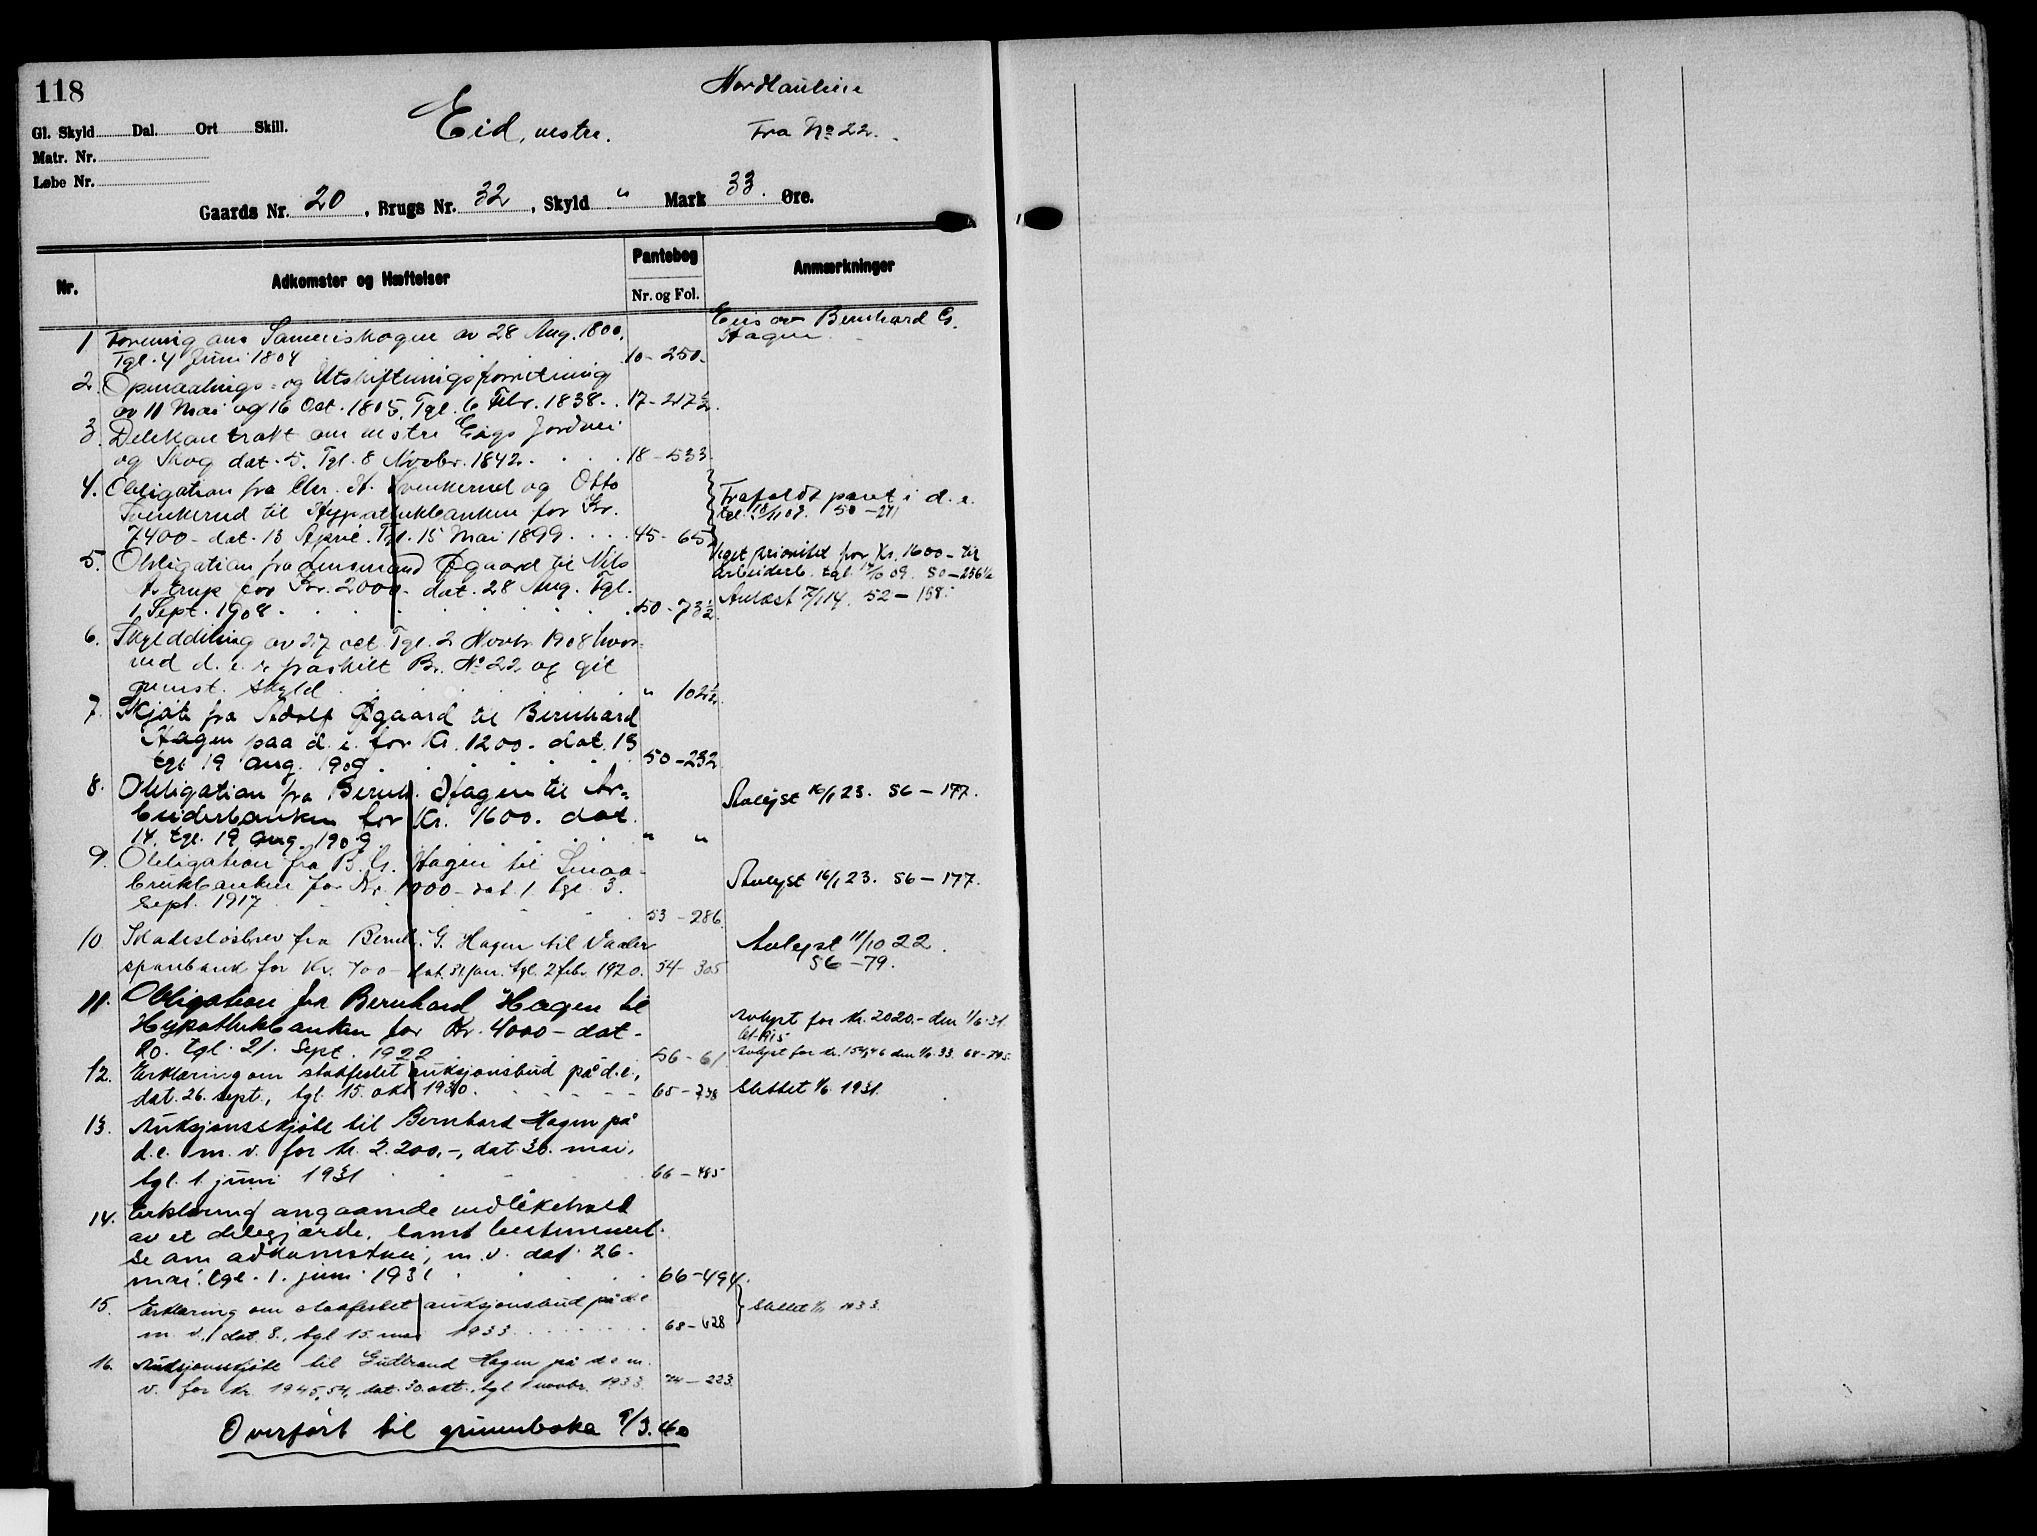 118
Eid, vestre.
Fra No 22.
Gl. Skyld Dal. Ort Skill.
Matr. Nr.
Løbe Nr.
Gaards Nr. 20, Brugs Nr. 32, Skyld " Mark 33. Øre.
Nr.
Adkomster og Hæftelser
Pantebog
Nr. og Fol.
Anmærkninger
Eies av Bernhard G.
Hagen.
1 Forening om Sameieskogene av 28 Aug. 1800.
Tgl. 4 Juni 1804 10-250.
2. Opmaalings- og Utskiftningsforretning
av 11 Mai og 16 Oct. 1805. Tgl. 6 Febr. 1838. 17-217½.
3. Delekontrakt om vestre Eigs Jordvei
og Skog dat. 5. Tgl. 8 Novbr. 1842. 18-533.
4. Obligation fra Chr. H. Svenkerud og Otto
Svenkerud til Hypothekbanken for Kr.
7400- dat. 13 April. Tgl. 15 Mai 1899 45-65
Frafaldt pant i d. e.
50-241
5. Obligation fra Lensmand Øgaard til Nils
Astrup for Kr. 2000- dat. 28 Aug. Tgl.
1 Sept. 1908. 50-73½
Veget prioritet for Kr. 1600- til
Arbeiderb. tgl. 19/8 09. 50-256½
Avlæst 7/1 14. 52-158.
6. Skylddeling av 27 oct. Tgl. 2 Novbr. 1908 hvor-
ved d. e. er fraskilt Br. No 22 og git
ovenst. skyld " 102½.
7. Skjøte fra Adolf Øgaard til Bernhard
Hagen paa d. e. for Kr. 1200- dat. 13
tgl 19 aug. 1909. 50-232
8. Obligation fra Bernh. Hagen til Ar-
beiderbanken for Kr. 1600. dat.
14. tgl. 19 aug. 1909. " "
Avlyst 16/1 23. 56-177.
9. Obligation fra B. G. Hagen til Smaa-
brukbanken for Kr. 1000- dat. 1. tgl. 3.
sept. 1917 53-286.
Avlyst 16/1 23. 56-177.
10. Skadesløsbrev fra Bernh. G. Hagen til Vaaler
sparebank for Kr. 700- dat. 31 jan. tgl. 2 febr. 1920. 54-305
Avlyst 11/10 22.
56-79.
11. Obligation fra Bernhard Hagen til
Hypothekbanken for Kr. 4000- dat.
20. tgl. 21. Sept. 1922 56-61
Avlyst for kr. 2020.- den 1/6. 31
12. Erklæring om stadfestet auksjonsbud på d.e.,
dat. 26. sept., tgl. 15. okt 1930. 65-738
Slettet 1/6 1931.
13. Auksjonsskjøte til Bernhard Hagen på
d.e. m. v. for kr. 2.200.-, dat. 30. mai,
tgl. 1. juni 1931 66-485
14. Erklæring angaaende vedlikehold
av et delegjærde, samt bestemmel-
se om adkomstvei, m.v. dat. 26.
mai. tgl. 1. juni 1931 66-494.
15. Erklæring om stadfestet auksjonsbud på d.e.
m. v., dat. 8., tgl 15. mai 1933 68-628
Slettet 1/11 1933.
16. Auksjonsskjøte til Gudbrand Hagen på d e m.
v. for kr. 1945,54, dat. 30. okt., tgl 1 novbr. 1933. 223.
Overført til grunnboka 9/3. 40